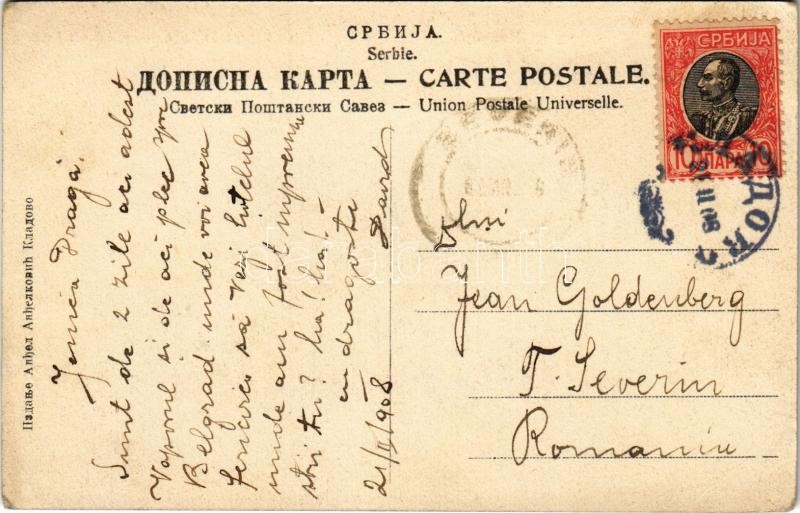 СРБИЈА.
Serbie.
ДОПИСНА КАРТА — CARTE POSTALE.
Светски Поштански Савез — Union Postale Universelle.
СРБИЈА
10 ПАРА 10
Издање Анђел Анђелковић Кладово
Jenica Dragă.
Sunt de 2 zile aci adast
Vaporul si de aci plec spre
Belgrad unde voi avea
fericirea să Văd hotelul
unde am fost impreună
stii tu? ha! ha! —
cu dragoste
David
21/II 1908
Jean Goldenberg
T. Severin
Romania